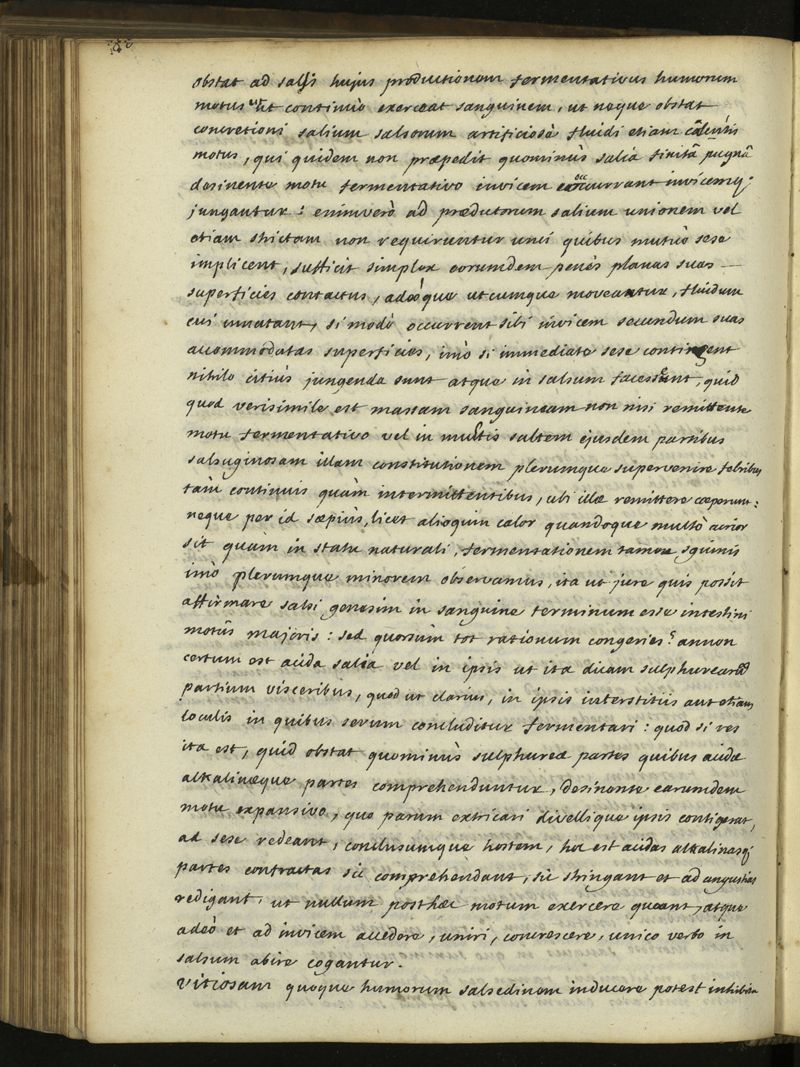 obstat ad salsi hujus productionem fermentativus humorum
motus ut continuò exerceat sanguinem, ut neque obstat
concretioni salium salsorum artificiosè fluidi etiam calentis
motus, qui quidem non præpedit quominùs salia finitâ pugnâ
desinente motu fermentativo invicem occurrant invicemq;
jungantur: enimverò ad prædictorum salium unionem vel
etiam strictam non requiruntur unci quibus mutuò sese
implicent, sufficit simplex eorumdem penès planas suas
superficies contactus, adeòque utcumque moveatur, fluidum
cui innatant, si modò occurrent sibi invicem secundum suas
accommodatas superficies, imò si immediatè sese contingent
nihilo citiùs jungenda sunt atque in salsum facessunt, quid
quod verisimile est massam sanguineam non nisi remittente
motu fermentativo vel in multis saltem ejusdem partibus
salsuginosam illam constitutionem plerumque supervenire febribus
tàm continuis quàm intermittentibus, ubi illæ remittere cæperunt:
neque per id sæpiùs, licet alioquin calor quandoque multò acrior
sit quàm in statu naturali, fermentationem tamen sguinis
imò plerumque minorem observamus, ita ut jure quis possit
affirmare salsi genesim in sanguine terminum esse intestini
motûs majoris: sed quorsùm tot rationum congeries? annon
certum est acida salia vel in ipsis ut ita dicam sulphurearum
partium visceribus, quod ut clarius, in ipsis interstitiis aut etiam
loculis in quibus serum concluditur fermentari: quod si res
ita est, quid obstat quominùs sulphureæ partes quibus acidæ
alkalinæque partes comprehenduntur, desinente earumdem
motu expansivo, quo parum extricari divellique ipsis contigerat,
ad sese redeant, conclusumque hostem, hoc est acidas alkalinasq;
partes contractas sic comprehendant, sic stringant et ad angustias
redigant, ut nullum posthàc motum exercere queant, atque
adeò et ad invicem accedere, uniri, concrescere, unico verbo in
salsum abire cogantur.
Vitiosam quoque humorum salsedinem inducere potest inhibita